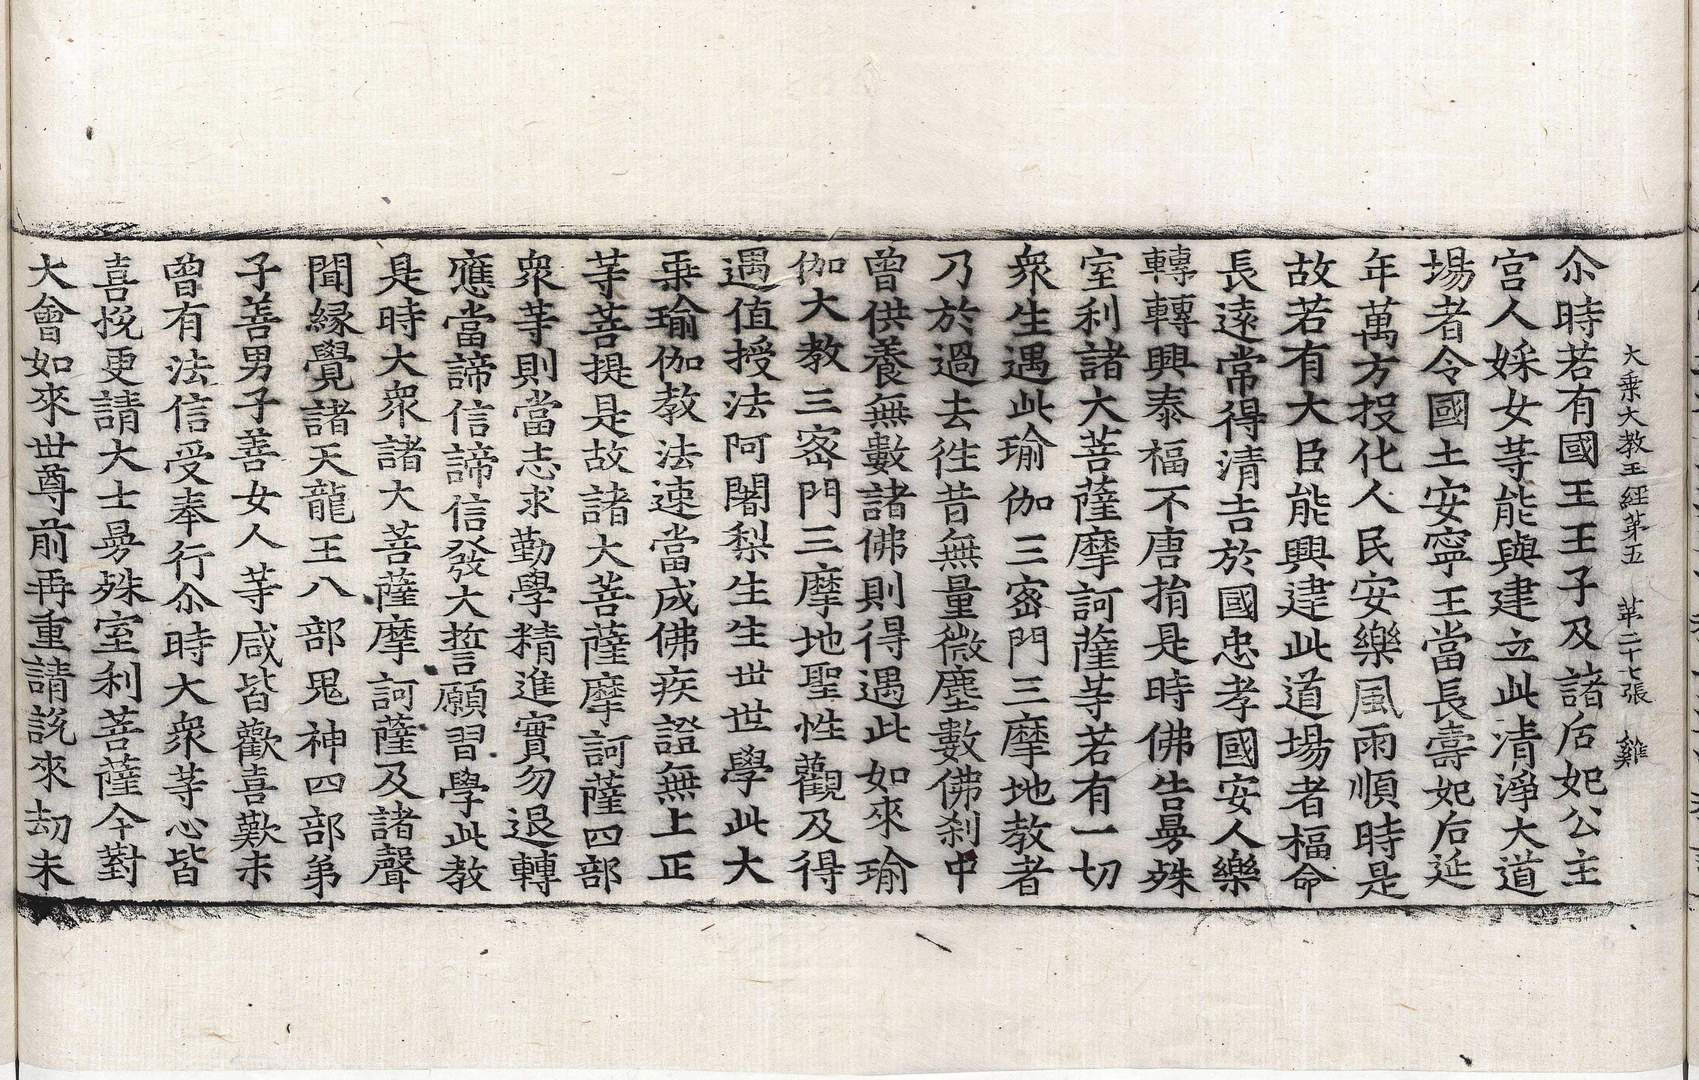 大乘大教王經第五　第二十七張　雞
尒時若有國王王子及諸后妃公主
宮人婇女䓁能與建立此清淨大道
場者令國土安寧王當長壽妃后延
年萬方投化人民安樂風雨順時是
故若有大臣能興建此道場者福命
長遠常得清吉於國忠孝國安人樂
轉轉興泰福不唐捐是時佛告曼殊
室利諸大菩薩摩訶薩䓁若有一切
衆生遇此瑜伽三密門三摩地教者
乃於過去徃昔無量微塵數佛刹中
曾供養無數諸佛則得遇此如來瑜
伽大教三密門三摩地聖性觀及得
遇值授法阿闍梨生生世世學此大
乗瑜伽教法速當成佛疾證無上正
䓁菩提是故諸大菩薩摩訶薩四部
衆䓁則當志求勤學精進實勿退轉
應當諦信諦信發大誓願習學此教
是時大衆諸大菩薩摩訶薩及諸聲
聞縁覺諸天龍王八部鬼神四部弟
子善男子善女人等咸皆歡喜歎未
曾有法信受奉行尒時大衆等心皆
喜悅更請大士曼殊室利菩薩今對
大會如來世尊前再重請說來劫未